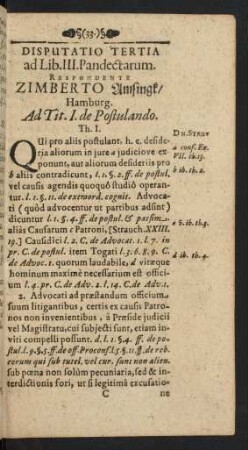 §(33)§
DISPUTATIO TERTIA
ad Lib. III. Pandectarum.
RESPONDENTE
ZIMBERTO Amsingk/
Hamburg.
Ad Tit. I. de Postulando.
Th. I.
QUi pro aliis postulant. h. e. deside-
ria aliorum in jure a judiciove ex-
ponunt, aut aliorum desideriis pro
b aliis contradicunt, l. 1. §. 2. ff. de postul.
vel causis agendis quoquô studiô operan-
tur. l. 1. §. 11. de extraord. cognit. Advoca-
ti (quôd advocentur ut partibus adsint)
dicuntur l. 1. §. 4. ff. de postul. & passim.
aliàs Causarum c Patroni, [Strauch. XXIII.
19.] Causidici l. 2. C. de Advocat. l. 7. in
pr. C. de postul. item Togati l. 3. 6. 8. 9. C.
de Advoc. quorum laudabile, d vitæque
hominum maximè necessarium est offici-
um l. 4. pr. C. de Adv. 2. l. 14. C. de Adv. 1.
2. Advocati ad præstandum officium
suum litigantibus, certis ex causis Patro-
nos non invenientibus, à Præside judicii
vel Magistratu, cui subjecti sunt, etiam in-
viti compelli possunt. d. l. 1. §. 4. ff. de po-
stul. l. 9. §. 5. ff. de off. Proconf. l. 5. §. 11. ff. de reb.
eorum qui sub tutel. vel cur. sunt non alien.
sub pœna non solùm pecuniaria, sed & in-
terdictionis fori, ut si legitimâ excusatio-
C ne
Dn. STRUV
a conf. Ex.
VII. th. 13.
b ib. th. 2.
c d. ib. th. 3.
d ib. th. 4.